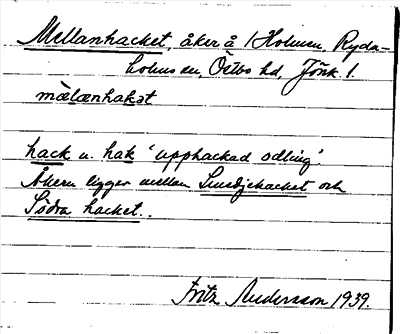 Mellanhacket, åker å 1 Holmen, Ryda-
holms sn, Östbo hd, Jönk. l.
mælænhakət
hack n. hak 'upphackad odling'.
Åkern ligger mellan Smedjehacket och
Södra hacket.
Fritz Andersson 1939.